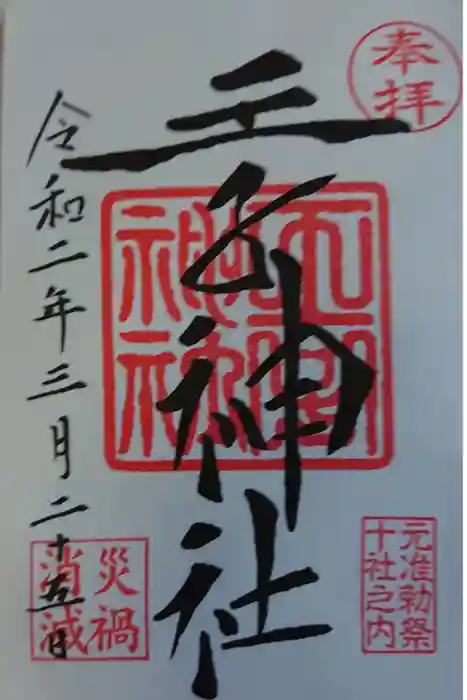 奉拝
王子神社
令和二年三月二十五日
元准勅祭
十社之内
災禍
消滅